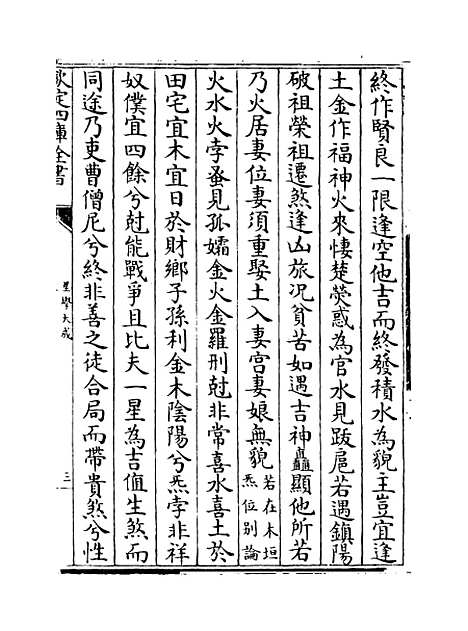 終作賢良一限逢空他吉而終發積水為貌主豈宜逢
土金作福神火來悽楚熒惑為官水見跋扈若遇鎮陽
破祖榮祖遷煞逢凶旅况貧苦如遇吉神矗顯他所若
乃火居妻位妻須重娶土入妻宫妻娘無貌若在木垣炁位别論
火水火孛蚤見孤孀金火金羅刑尅非常喜水喜土於
田宅宜木宜日於財鄉子孫利金木陰陽兮炁孛非祥
奴僕宜四餘兮尅能戰爭且比夫一星為吉值生煞而
同途乃吏曹僧尼兮終非善之徒合局而帶貴煞兮性
欽定四庫全書
星學大成